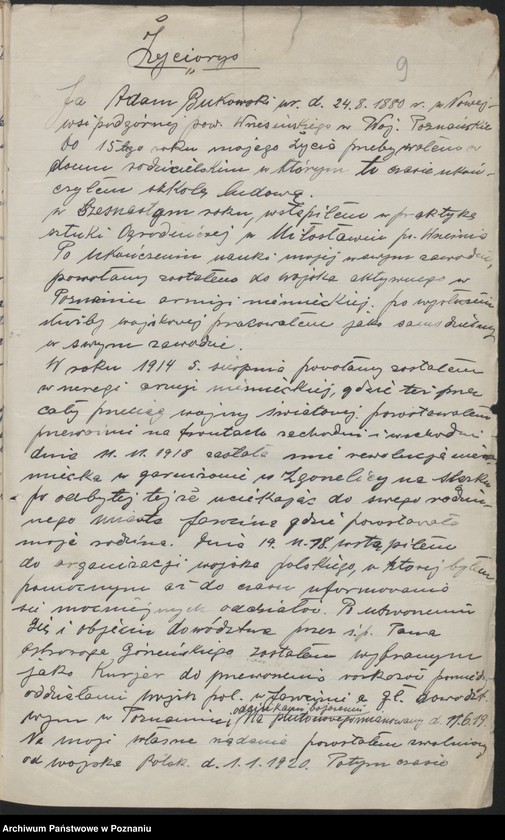 9
Życiorys
Ja Adam Bukowski ur. d. 24.8.1880 r. w Nowej-
wsi podgórnej pow. Wrzesińskiego w Woj. Poznańskie
Do 15tego roku mojego życia przebywałem w
domu rodzicielskim w którym to czasie ukoń-
czyłem szkołę ludową
w Szesnastym roku, wstąpiłem w praktykę
sztuki Ogrodniczej w Miłosławiu p. Września
Po Ukończeniu nauki mojej w swym zawodzie,
powołany zostałem do wojska aktywnego w
Poznaniu armji niemieckiej, po
służby wojskowej pracowałem jako samodzielny
w swym zawodzie.
W roku 1914 5. sierpnia powołany zostałem
w szeregi armji niemieckiej, gdzie też przez
cały przeciąg wojny światowej pozostawałem
przeważnie na frontach zachodni i wschodni
dnia 11.11.1918 zastała mnie rewolucja nie-
miecka w garnizonie w Zgorzelicy na Śląsku
po odbytej tejże uciekając do swego rodzin-
nego miasta Jarocina gdzie pozostawała
moja rodzina. Dnia 19.11.18. wstąpiłem
do organizacji wojska polskiego, w której byłem
pomocnym aż do czasu uformowania
się oddziałów. Po utworzeniu
się i objęciu dowództwa przez ś.p. Pana
ostroroga Gorzeńskiego zostałem wybranym
jako Kurjer do przewożenia rozkazów pomiędzy
oddziałami wojsk pol. w Jarocinie a gł. dowódz-
wym w Poznaniu, Na d. 11.6.19.
Na moje własne żądanie pozostałem zwolniony
od wojska Polsk. d. 1.1.1920. Potym czasie
Archiwum Państwowe w Poznaniu